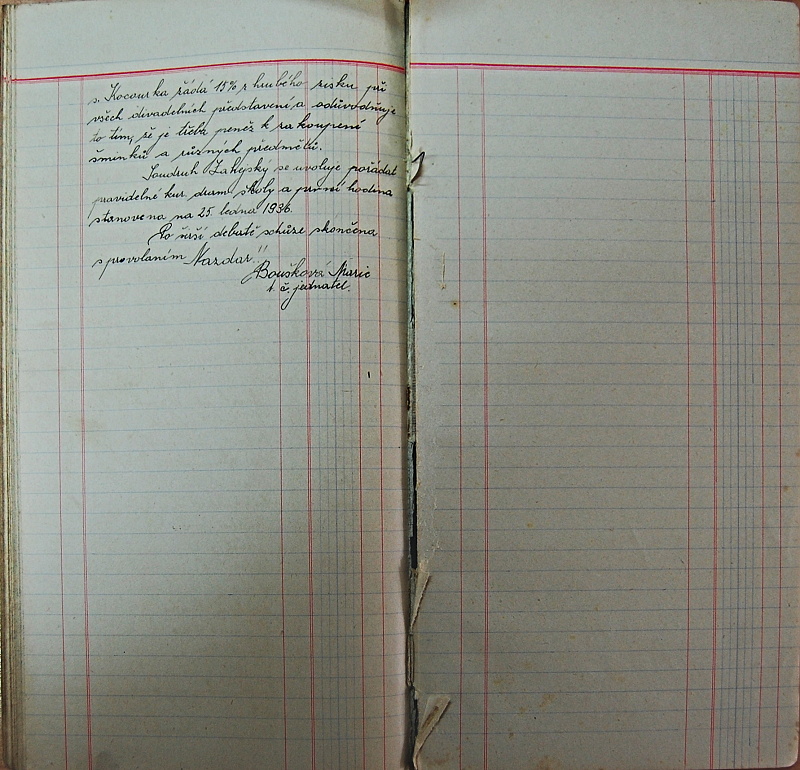 s. Kocourka žádá 15% z hrubého zisku při
všech divadelních představení a odůvodňuje
to tím, že je třeba peněz k zakoupení
šminků a různých předmětů.
Soudruh Zahejský se uvoluje pořádat
pravidelné kur. dram. školy a první hodina
stanovena na 25. ledna 1936.
Po širší debatě schůze skončena
s provoláním Nazdar!!
Boušková Marie
t. č. jednatel.